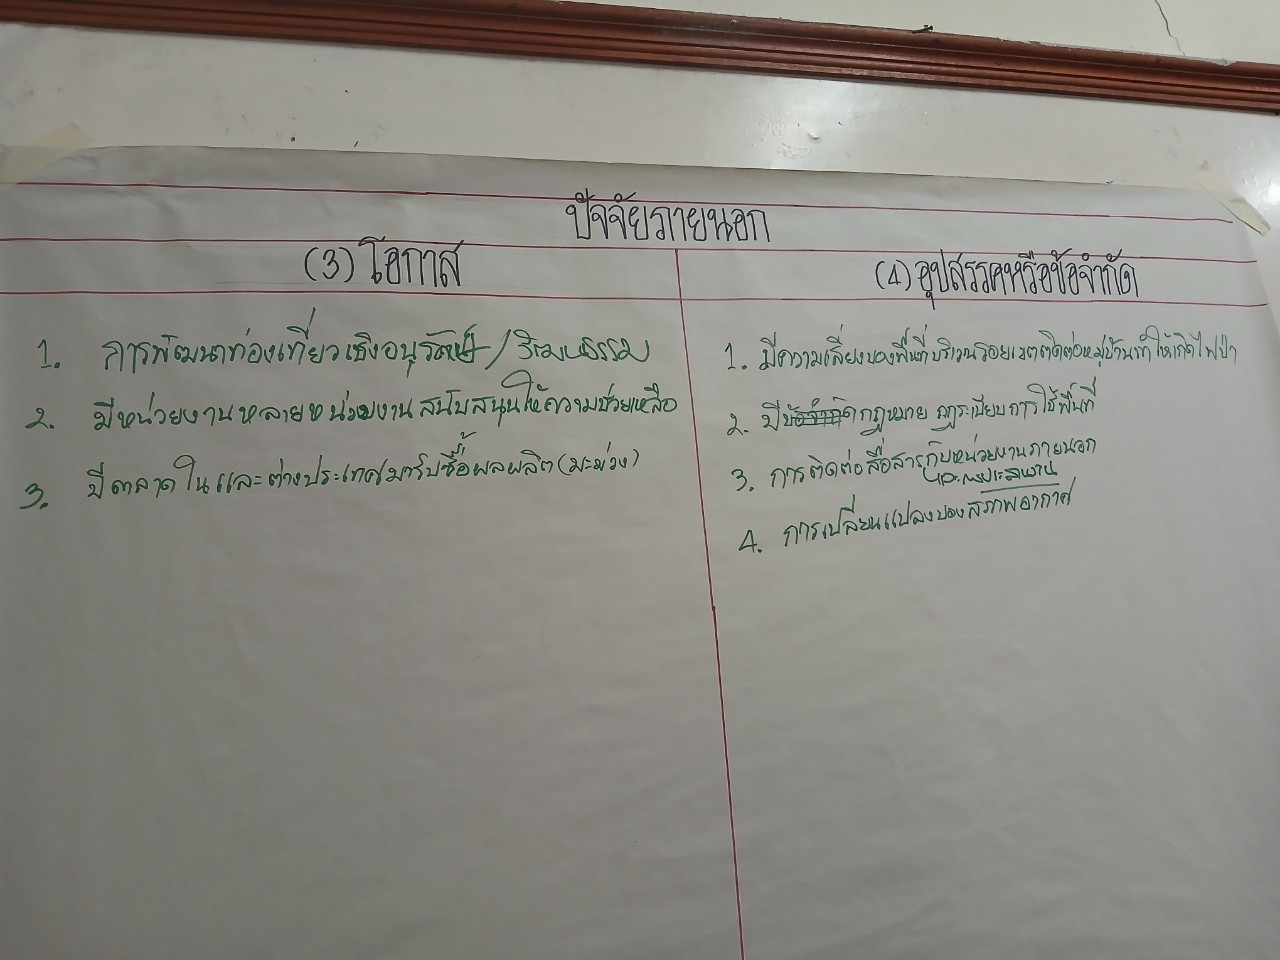 ปัจจัยภายนอก
(3) โอกาส
1. การพัฒนาท่องเที่ยวเชิงอนุรักษ์ / วัฒนธรรม
2. มีหน่วยงานหลายหน่วยงานสนับสนุนให้ความช่วยเหลือ
3. มีตลาดในและต่างประเทศมารับซื้อผลผลิต (มะม่วง)
(4) อุปสรรคหรือข้อจำกัด
1. มีความเสี่ยงของพื้นที่บริเวณรอยเขตติดต่อหมู่บ้านทำให้เกิดไฟป่า
2. มีข้อจำกัดกฎหมาย กฎระเบียบการใช้พื้นที่
3. การติดต่อสื่อสารกับหน่วยงานภายนอก
และการประสานงาน
4. การเปลี่ยนแปลงของสภาพอากาศ